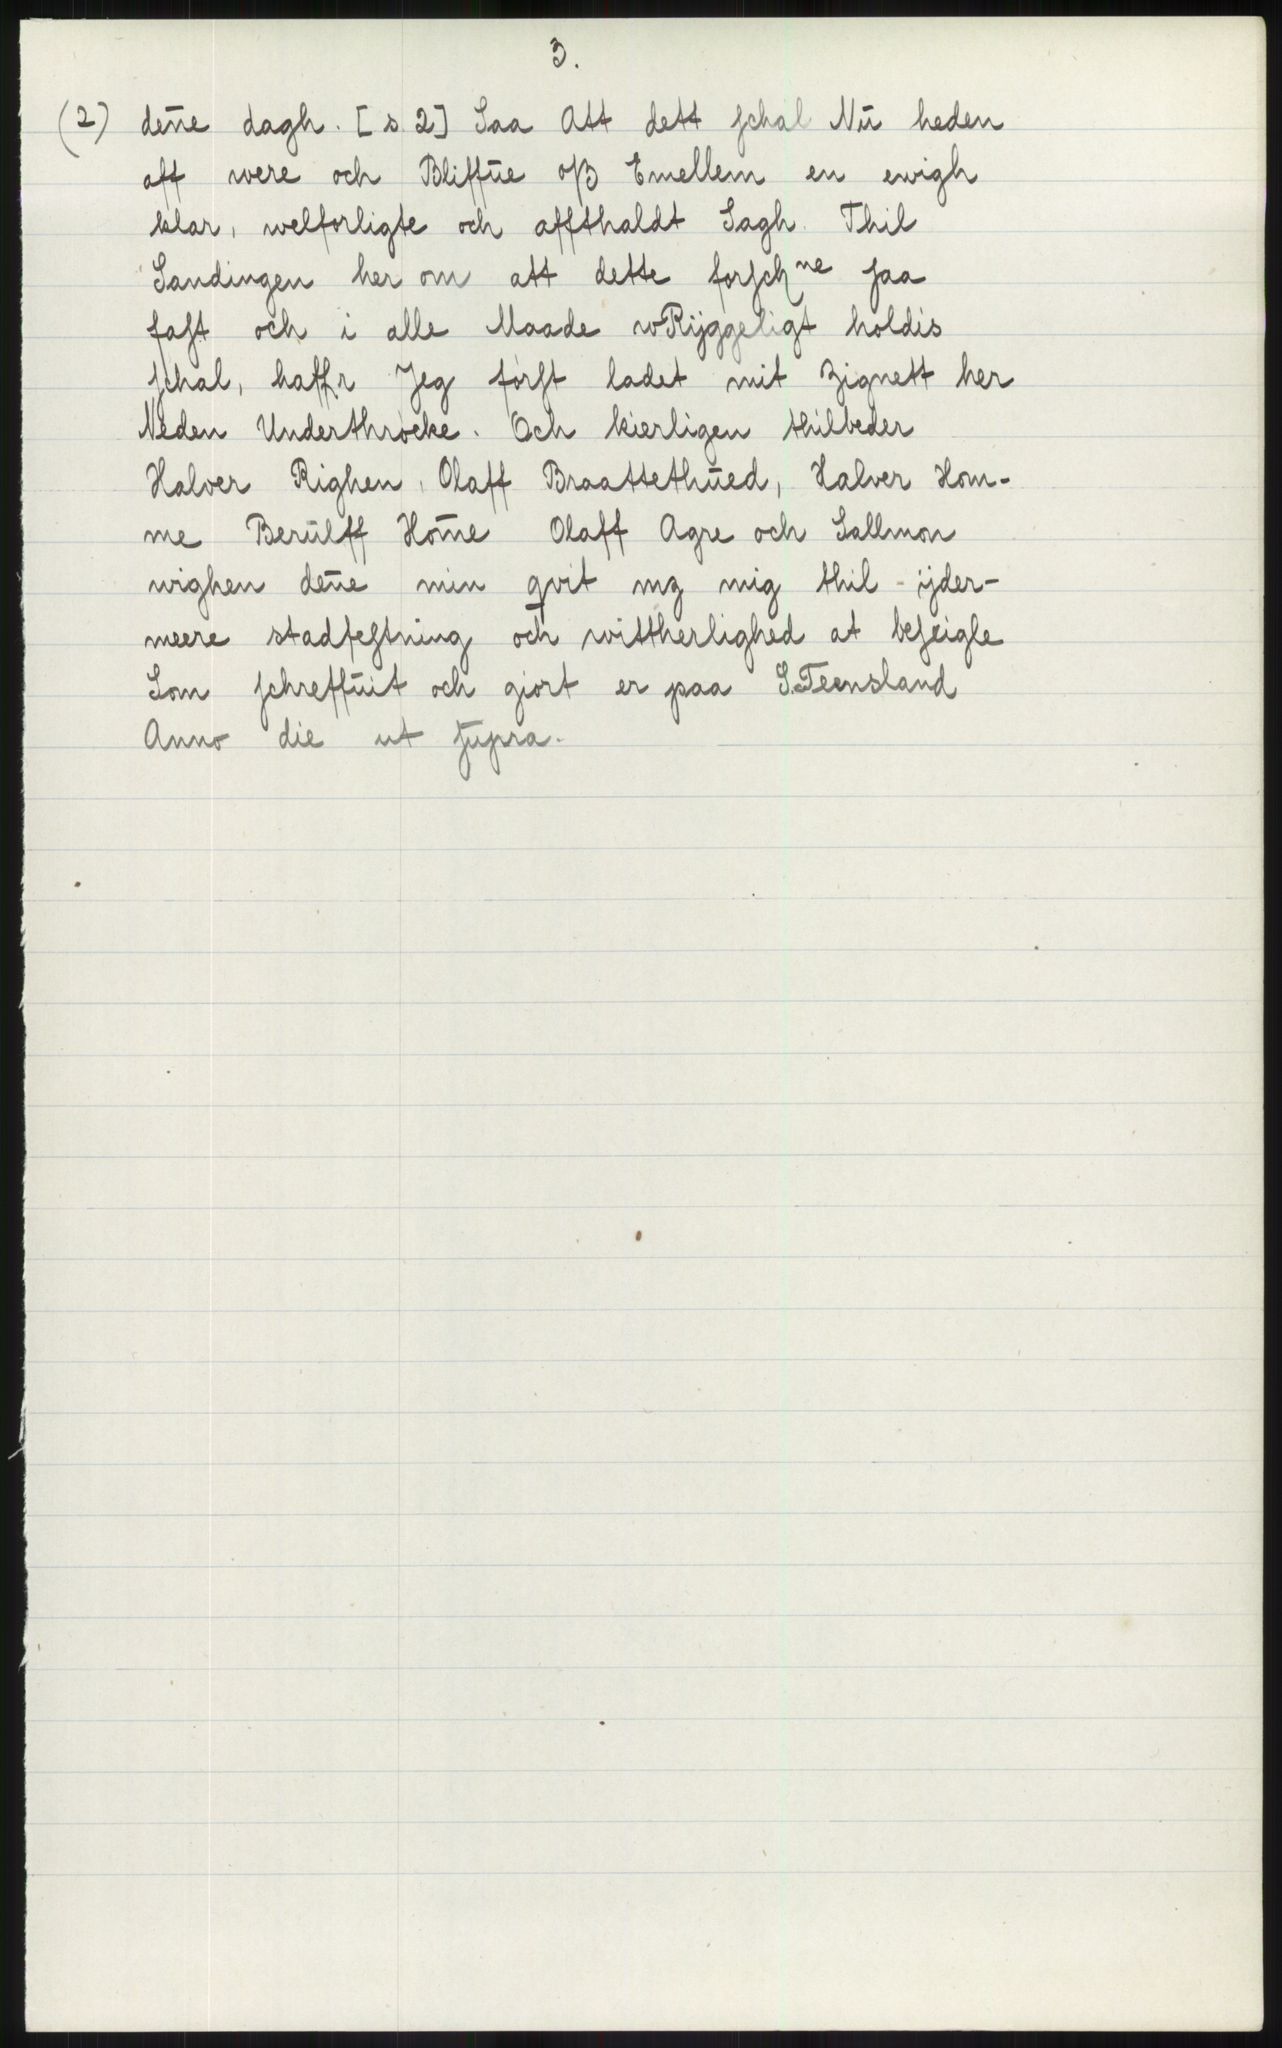 3.
(2) den̄e dagh. [s 2] Saa Att dett ſchal Nū heden
aff were och Bliffūe oſʒ Emellem en ewigh
klar, welforligte och affthaldt Sagh. Thil
Sandingen her om att dette forſchⁿᵉ ſaa
faſt och i alle Maade wRijggeligt holdis
ſchal, haffr Jeg førſt ladet mit Zignett her
Neden Underthrøcke. Och kierligen thilbeder
Halver Righen, Olaff Braattethūed, Halver Hom-
me Berūlff Hom̄e Olaff Agre och Sallmon
wighen den̄e min qvit mʒ mig thil ijder-
meere stadfeſtning och wittherlighed at beſeigle
Som ſchreffūit och giort er paa S.Teensland
Anno die ut ſūpra.